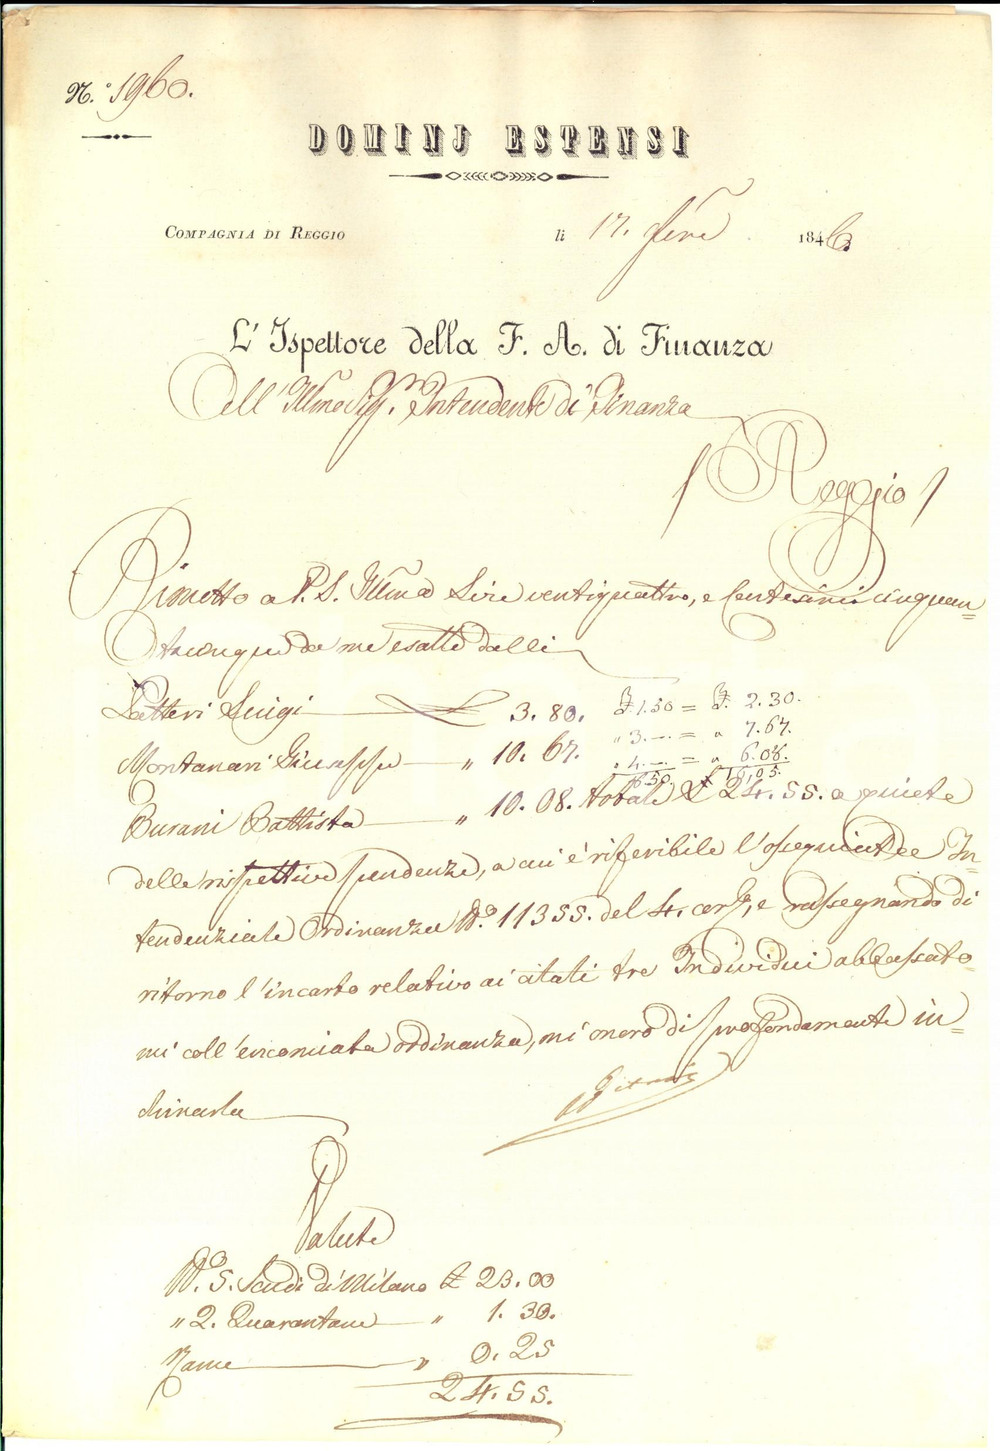 N.° 1960.
DOMINJ ESTENSI
COMPAGNIA DI REGGIO lì 17. 1846.
L' Ispettore della F. A. di Finanza
All' Illmo Sigr. Intendente di Finanza
/ Reggio /
Rimetto a V. S. Illma Lire ventiquattro, e Centesimi cinquan=
tacinque da me esatte dalli
Luigi 3. 80. £ 1.50 = £. 2. 30.
Montanari Giuseppe „ 10. 67. „ 3. — . = „ 7. 67.
„ 4. — . = „ 6. 08.
8 50. £ 16,05.
Burani Battista „ 10. 08. totale £ 24. 55. a quiete
delle rispettive pendenze, a cui è riferibile l'ossequiata In=
tendenziale Ordinanza No. 11355. del 4. corr., e rassegnando di
ritorno l'incarto relativo ai citati tre Individui abbassato
mi coll'encomiata ordinanza, mi onoro di profondamente in=
chinarla
Valute
No. 5. Scudi di Milano £ 23. 00
„ 2. Quarantane „ 1. 30.
Rame „ 0. 25
24. 55.